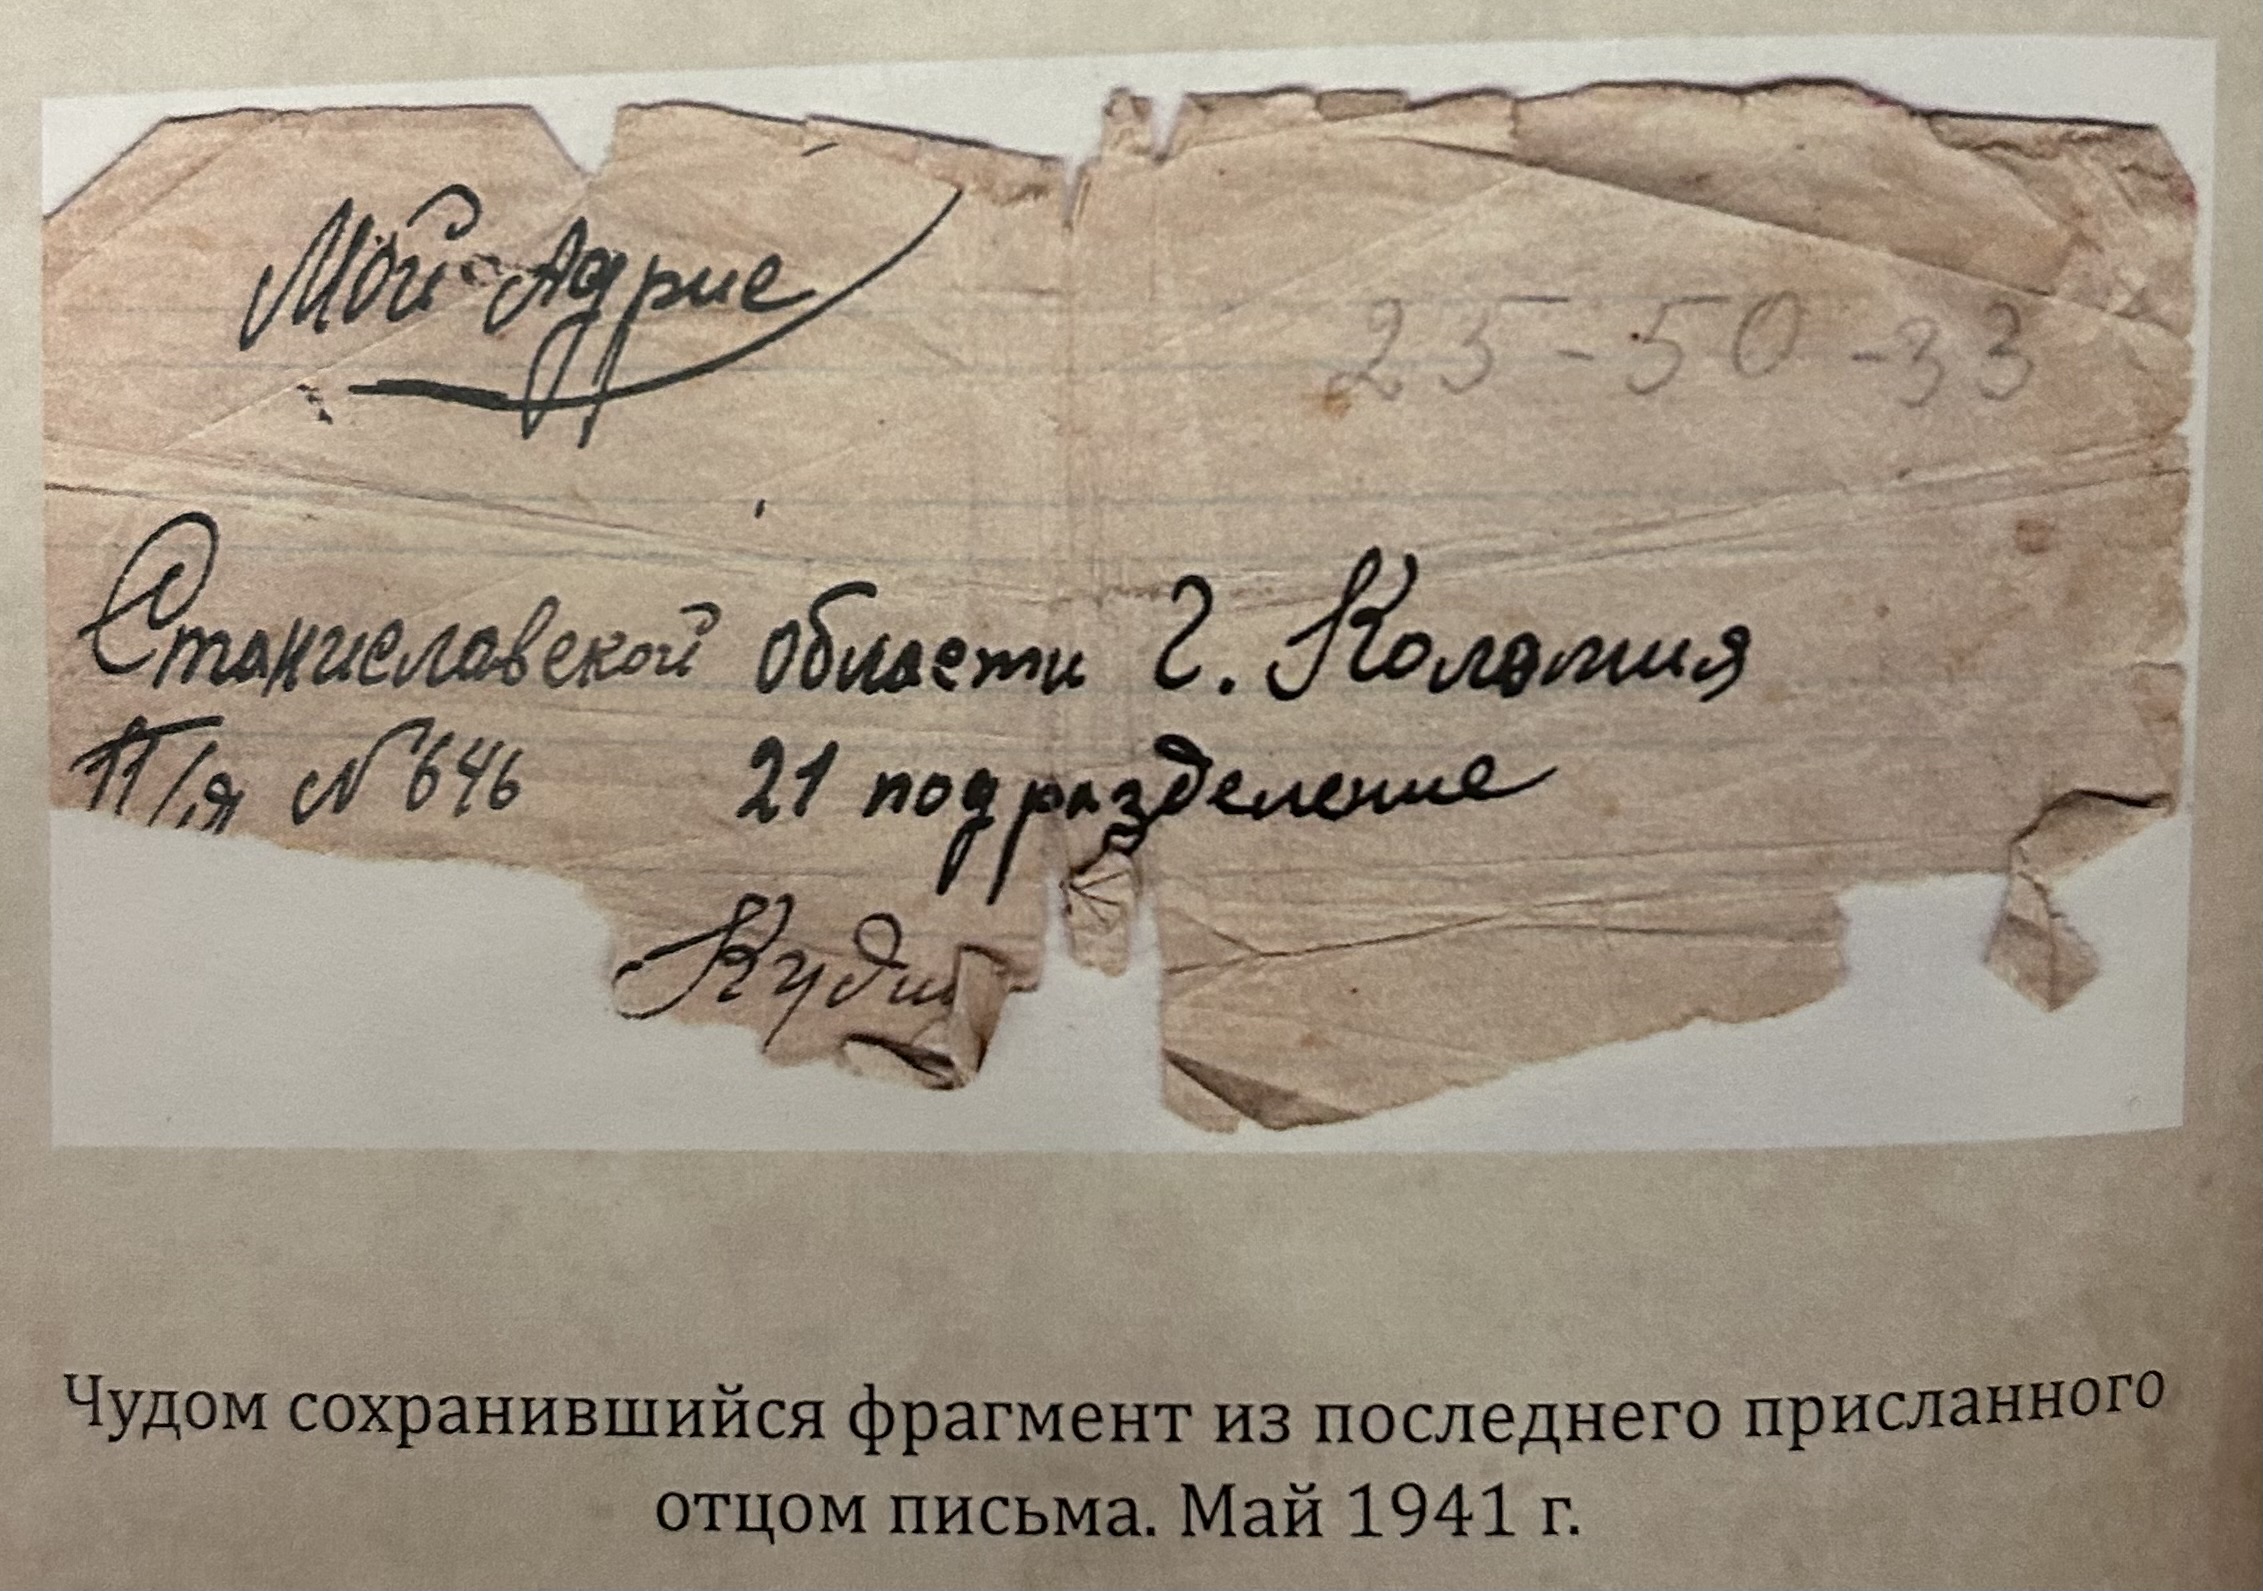 Мой Адрис
25-50-33
Станиславской области г. Коломия
П/я № 646 21 подразделение
Кудин
Чудом сохранившийся фрагмент из последнего присланного
отцом письма. Май 1941 г.